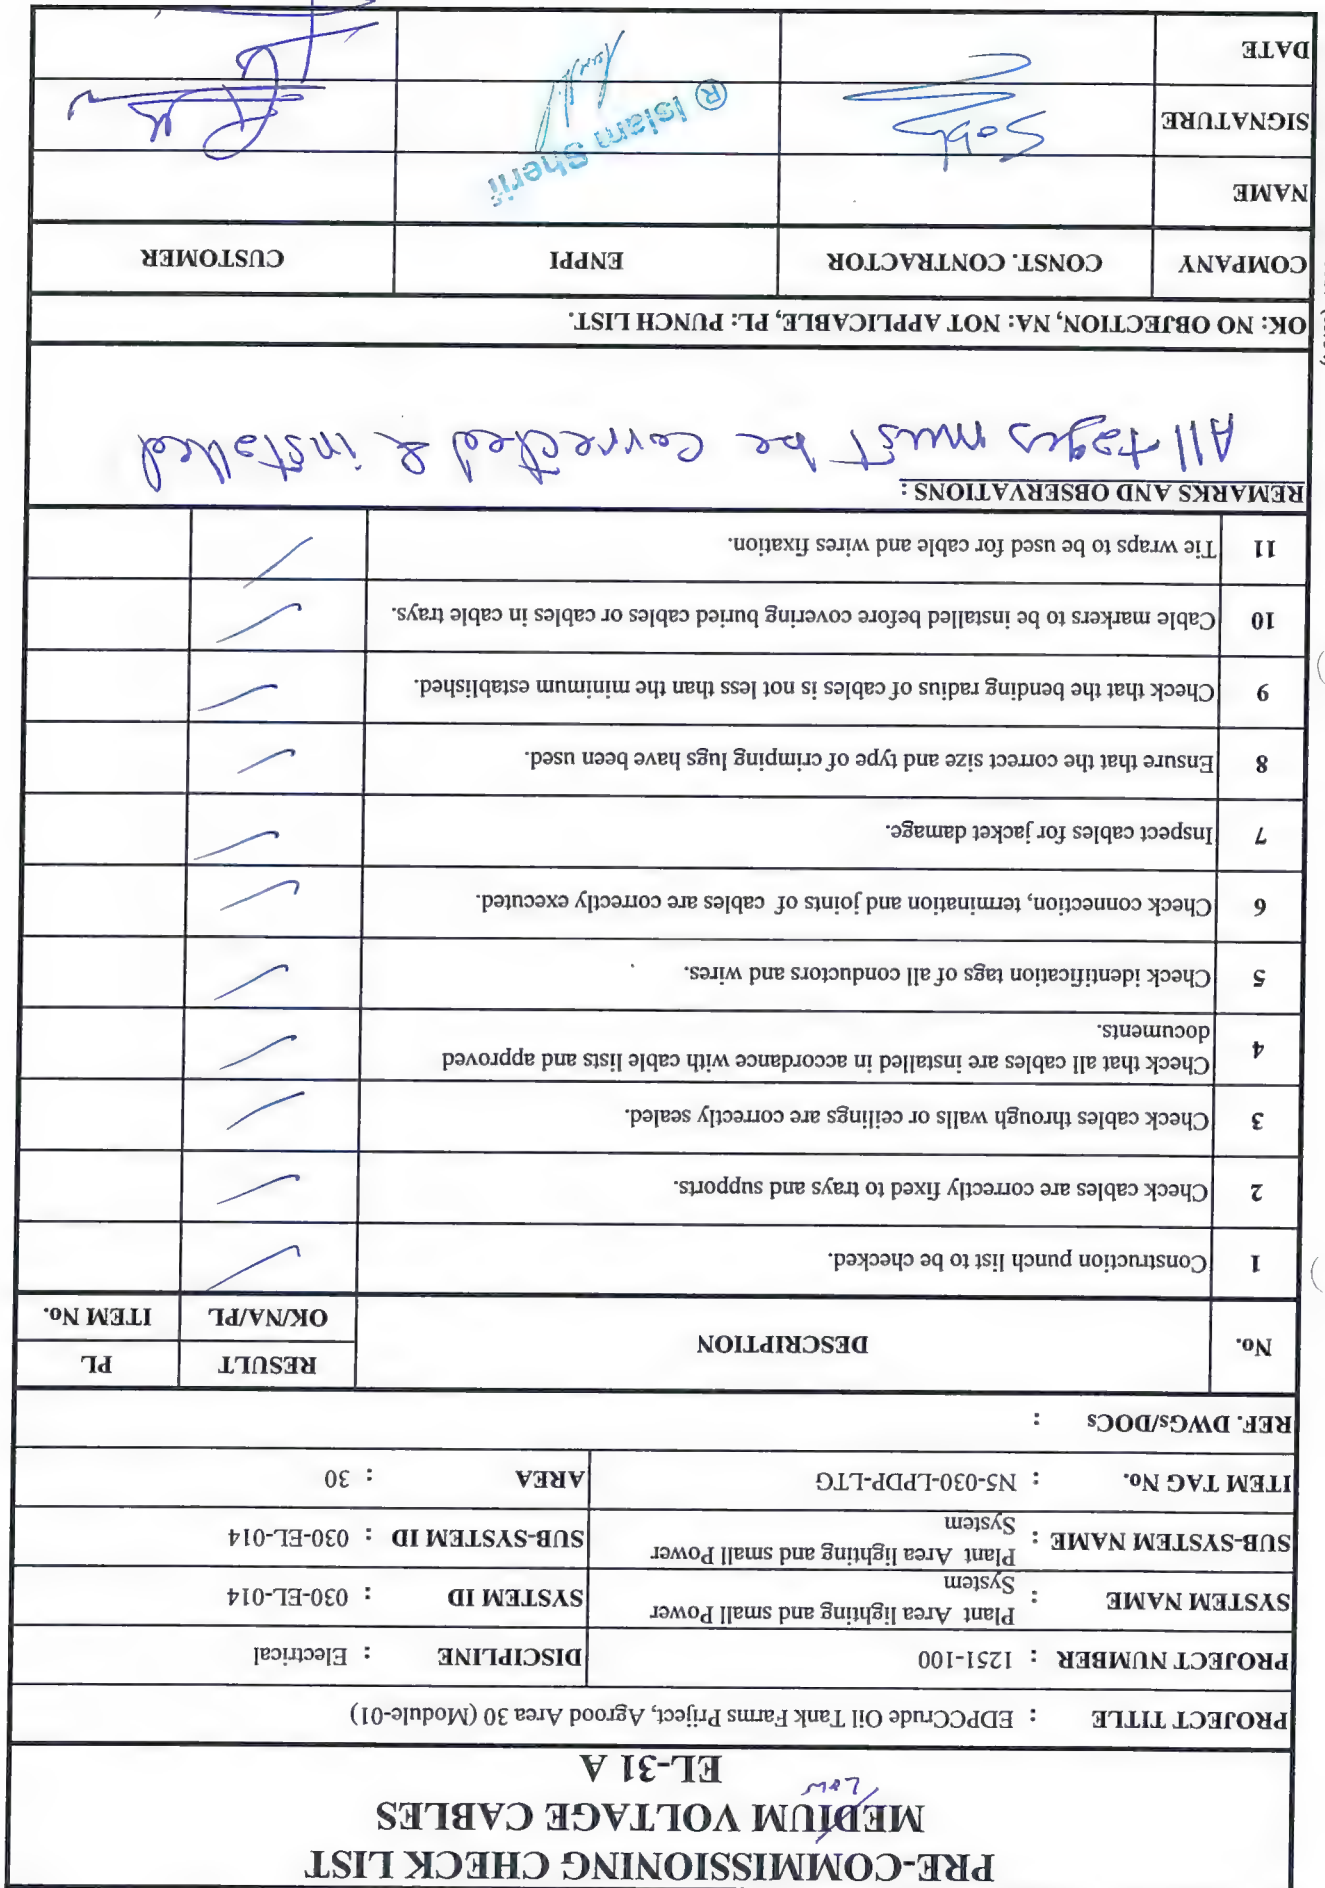 PRE-COMMISSIONING CHECK LIST
MEDIUM VOLTAGE CABLES
Low
EL-31 A
PROJECT TITLE : EDPCCrude Oil Tank Farms Priject, Agrood Area 30 (Module-01)
PROJECT NUMBER : 1251-100 DISCIPLINE : Electrical
SYSTEM NAME : Plant Area lighting and small Power System SYSTEM ID : 030-EL-014
SUB-SYSTEM NAME : Plant Area lighting and small Power System SUB-SYSTEM ID : 030-EL-014
ITEM TAG No. : N5-030-LPDP-LTG AREA : 30
REF. DWGs/DOCs :
No. DESCRIPTION RESULT PL
OK/NA/PL ITEM No.
1 Construction punch list to be checked.
2 Check cables are correctly fixed to trays and supports.
3 Check cables through walls or ceilings are correctly sealed.
4 Check that all cables are installed in accordance with cable lists and approved
documents.
5 Check identification tags of all conductors and wires.
6 Check connection, termination and joints of cables are correctly executed.
7 Inspect cables for jacket damage.
8 Ensure that the correct size and type of crimping lugs have been used.
9 Check that the bending radius of cables is not less than the minimum established.
10 Cable markers to be installed before covering buried cables or cables in cable trays.
11 Tie wraps to be used for cable and wires fixation.
REMARKS AND OBSERVATIONS :
All tages must be corrected & installed
OK: NO OBJECTION, NA: NOT APPLICABLE, PL: PUNCH LIST.
COMPANY CONST. CONTRACTOR ENPPI CUSTOMER
NAME
® Islam Sherif
SIGNATURE
DATE